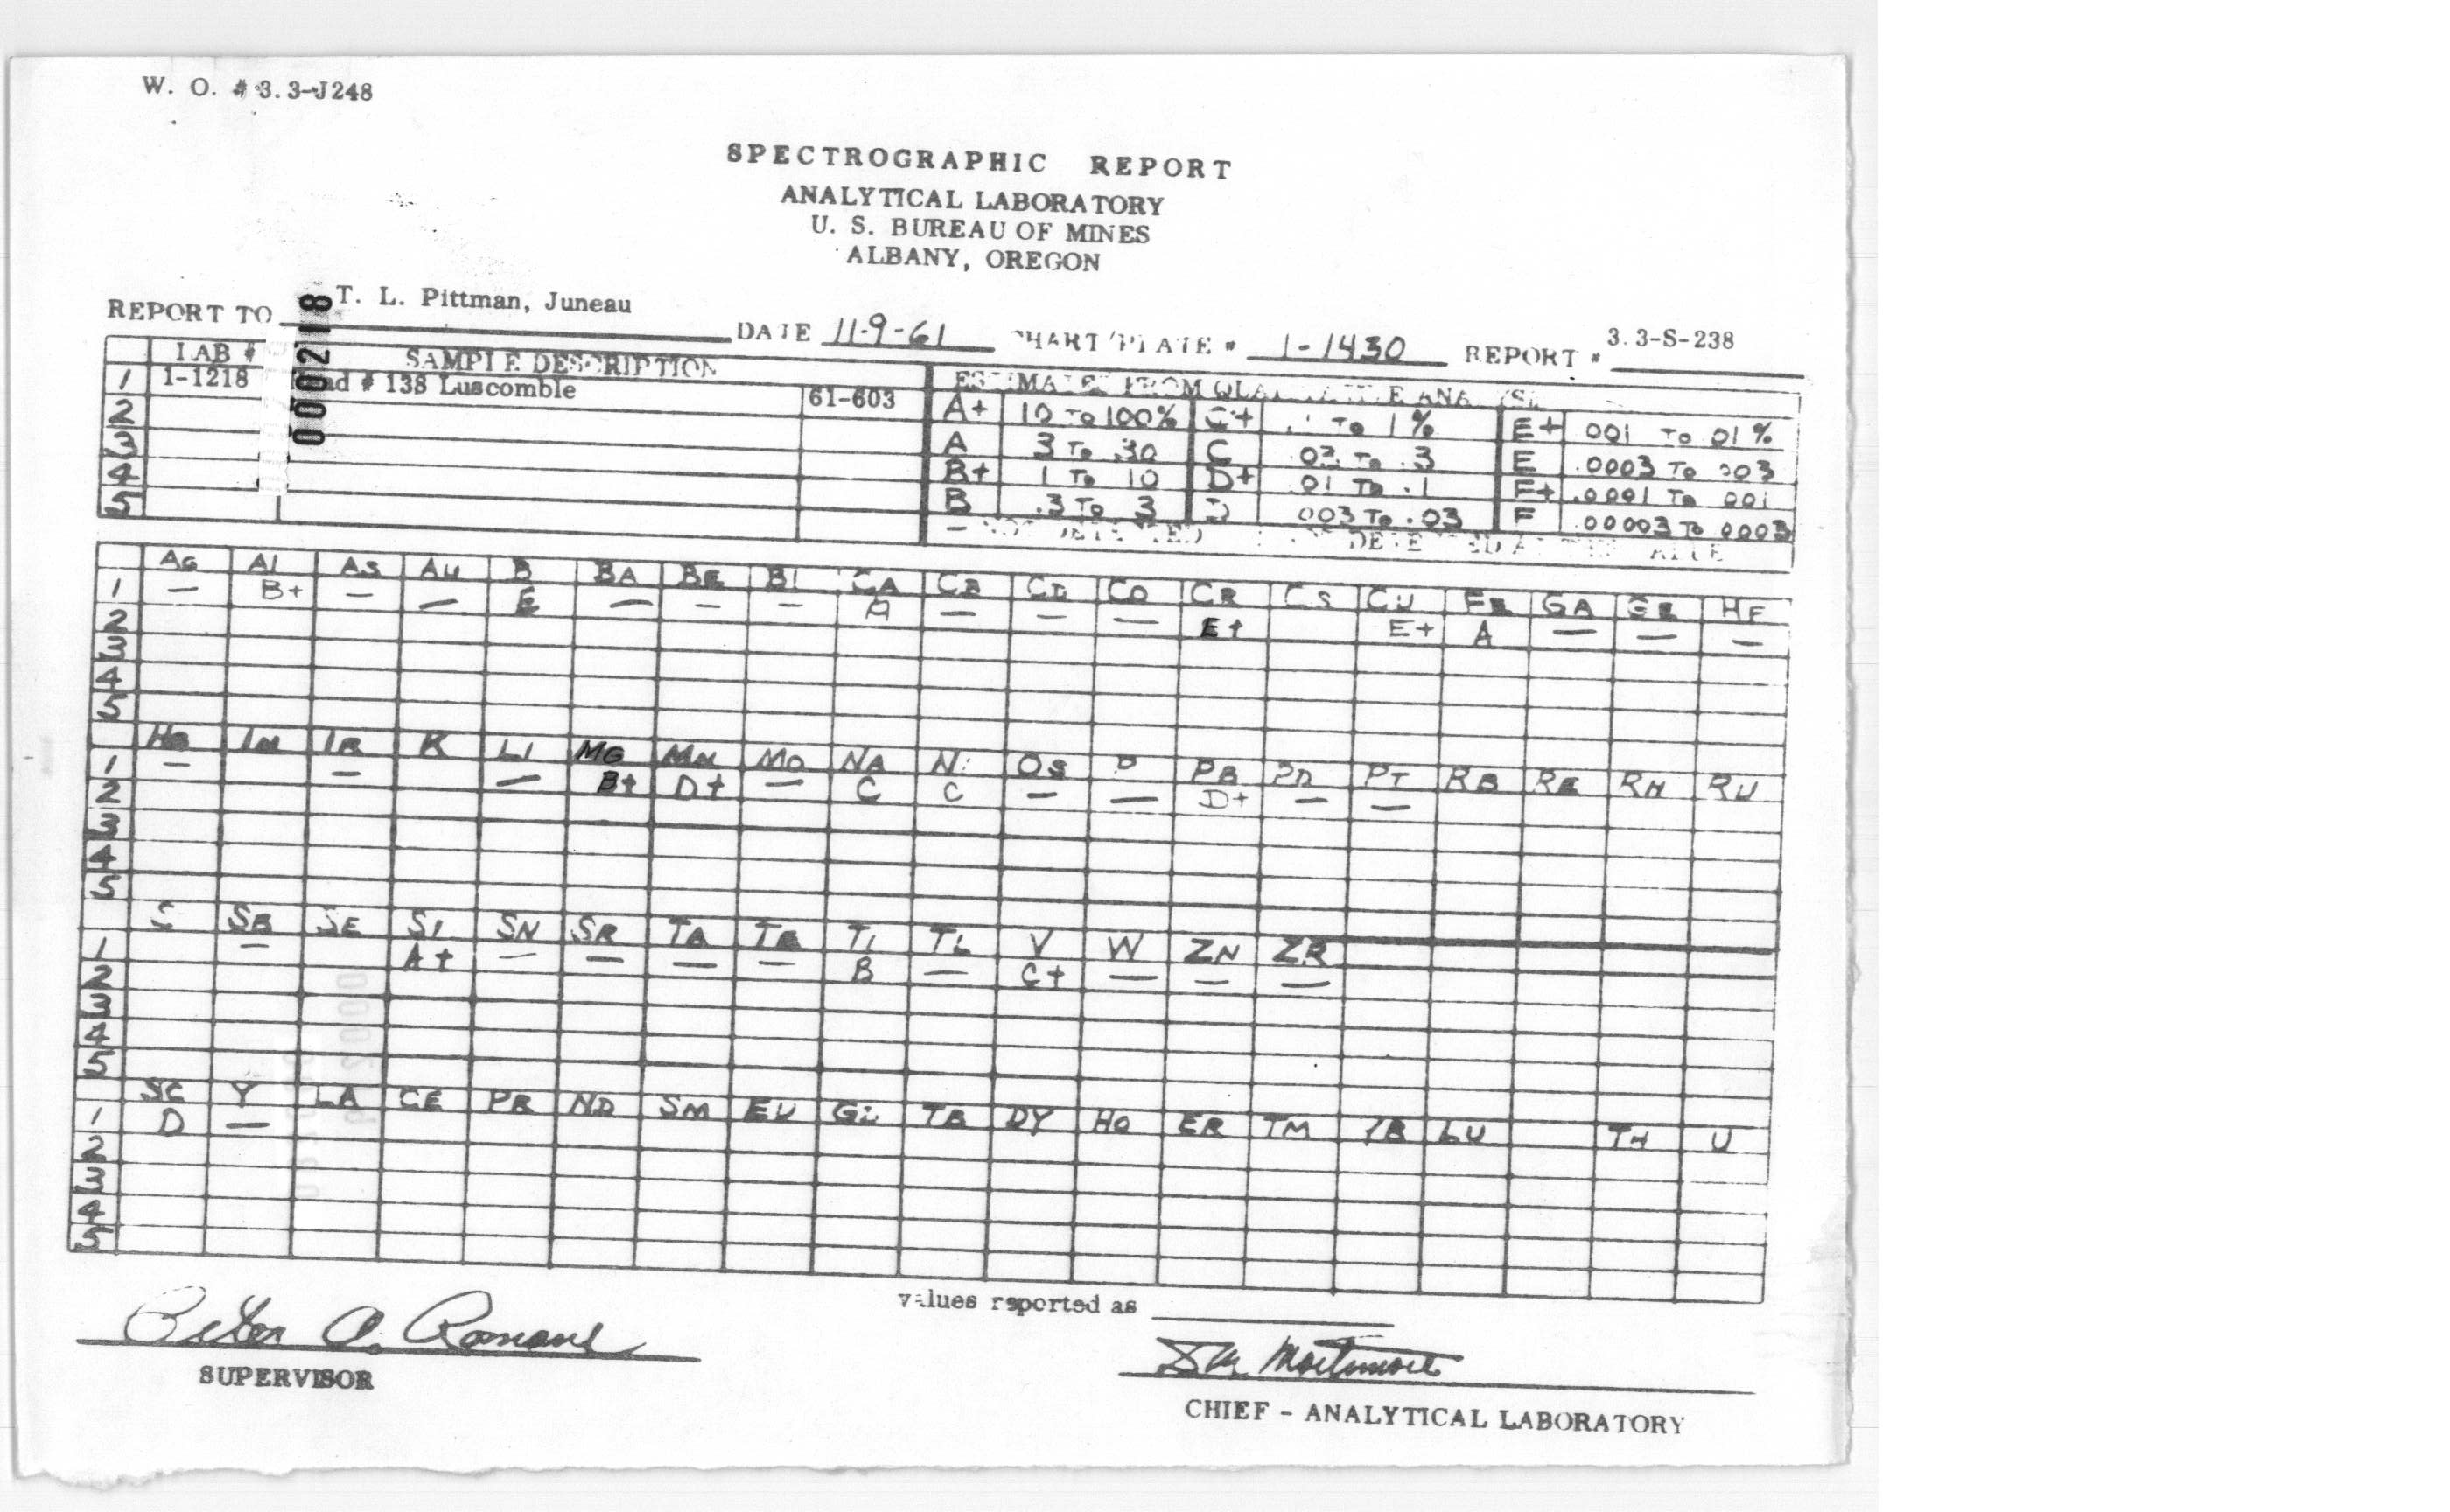 W. O. # 3.3-J248
SPECTROGRAPHIC REPORT
ANALYTICAL LABORATORY
U. S. BUREAU OF MINES
ALBANY, OREGON
REPORT TO T. L. Pittman, Juneau DATE 11-9-61 CHART/PLATE # 1-1430 REPORT # 3.3-S-238
000218
LAB # SAMPLE DESCRIPTION ESTIMATES FROM QUALITATIVE ANALYSIS
1 1-1218 # 138 Luscomble 61-603
2 A+ 10 To 100% C+ .1 To 1% E+ .001 To .01%
3 A 3 To 30 C .03 To .3 E .0003 To .003
4 B+ 1 To 10 D+ .01 To .1 F+ .0001 To .001
5 B .3 To 3 D .003 To .03 F .00003 To .0003
— NOT DETECTED
AG AL AS AU B BA BE BI CA CB CD CO CR CS CU FE GA GE HF
1 — B+ — — E — — — A — — — E+ E+ A — — —
2
3
4
5
HG IN IR K LI MG MN MO NA NI OS P PB PD PT RB RE RH RU
1 — — — B+ D+ — C C — — D+ — —
2
3
4
5
S SB SE SI SN SR TA TE TI TL V W ZN ZR
1 — A+ — — — — B — C+ — — —
2
3
4
5
SC Y LA CE PR ND SM EU GD TB DY HO ER TM YB LU TH U
1 D —
2
3
4
5
values reported as
Peter A. Romans
SUPERVISOR
Mortimore
CHIEF - ANALYTICAL LABORATORY